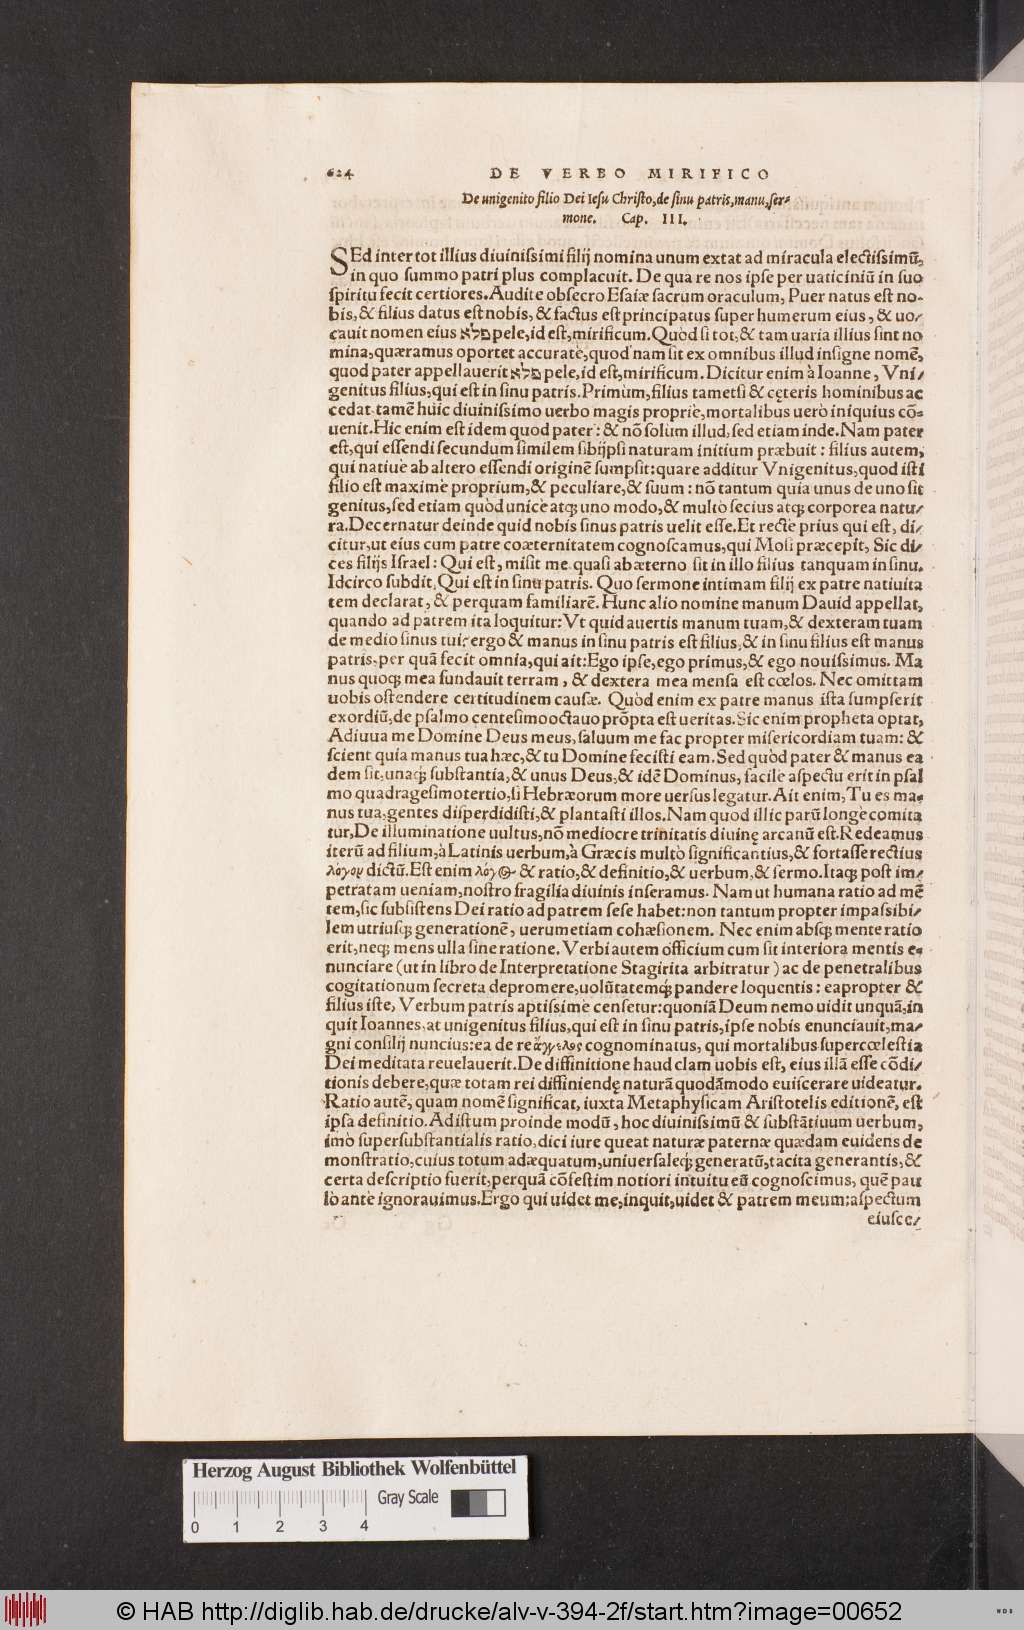 624 DE VERBO MIRIFICO
De unigenito filio Dei Iesu Christo, de sinu patris, manu, ser-
mone. Cap. III.
SEd inter tot illius diuinissimi filij nomina unum extat ad miracula electissimũ,
in quo summo patri plus complacuit. De qua re nos ipse per uaticiniũ in suo
spiritu fecit certiores. Audite obsecro Esaiæ sacrum oraculum, Puer natus est no-
bis, & filius datus est nobis, & factus est principatus super humerum eius, & uo-
cauit nomen eius פלא pele, id est, mirificum. Quòd si tot, & tam uaria illius sint no
mina, quæramus oportet accuratè, quod'nam sit ex omnibus illud insigne nomẽ,
quod pater appellauerit פלא pele, id est, mirificum. Dicitur enim à Ioanne, Vni-
genitus filius, qui est in sinu patris. Primùm, filius tametsi & cęteris hominibus ac
cedat, tamẽ huic diuinissimo uerbo magis propriè, mortalibus uerò iniquius cõ-
uenit. Hic enim est idem quod pater: & nõ solùm illud, sed etiam inde. Nam pater
est, qui essendi secundum similem sibijpsi naturam initium præbuit: filius autem,
qui natiuè ab altero essendi originẽ sumpsit: quare additur Vnigenitus, quod isti
filio est maximè proprium, & peculiare, & suum: nõ tantum quia unus de uno sit
genitus, sed etiam quòd unicè atq; uno modo, & multò secius atq; corporea natu-
ra. Decernatur deinde quid nobis sinus patris uelit esse. Et rectè prius qui est, di-
citur, ut eius cum patre coæternitatem cognoscamus, qui Mosi præcepit, Sic di-
ces filijs Israel: Qui est, misit me. quasi ab æterno sit in illo filius tanquam in sinu.
Idcirco subdit, Qui est in sinu patris. Quo sermone intimam filij ex patre natiuita
tem declarat, & perquam familiarẽ. Hunc alio nomine manum Dauid appellat,
quando ad patrem ita loquitur: Vt quid auertis manum tuam, & dexteram tuam
de medio sinus tui? ergo & manus in sinu patris est filius, & in sinu filius est manus
patris, per quã fecit omnia, qui ait: Ego ipse, ego primus, & ego nouissimus. Ma
nus quoq; mea fundauit terram, & dextera mea mensa est cœlos. Nec omittam
uobis ostendere certitudinem causæ. Quòd enim ex patre manus ista sumpserit
exordiũ, de psalmo centesimooctauo prõpta est ueritas. Sic enim propheta optat,
Adiuua me Domine Deus meus, saluum me fac propter misericordiam tuam: &
scient quia manus tua hæc, & tu Domine fecisti eam. Sed quòd pater & manus ea
dem sit, unaq; substantia, & unus Deus, & idẽ Dominus, facile aspectu erit in psal
mo quadragesimotertio, si Hebræorum more uersus legatur. Ait enim, Tu es ma-
nus tua, gentes disperdidisti, & plantasti illos. Nam quod illic parũ longè comita
tur, De illuminatione uultus, nõ mediocre trinitatis diuinę arcanũ est. Redeamus
iterũ ad filium, à Latinis uerbum, à Græcis multò significantius, & fortasse rectius
λόγον dictũ. Est enim λόγος & ratio, & definitio, & uerbum, & sermo. Itaq; post im-
petratam ueniam, nostro fragilia diuinis inseramus. Nam ut humana ratio ad mẽ
tem, sic subsistens Dei ratio ad patrem sese habet: non tantum propter impassibi-
lem utriusq; generationẽ, uerumetiam cohæsionem. Nec enim absq; mente ratio
erit, neq; mens ulla sine ratione. Verbi autem officium cum sit interiora mentis e-
nunciare (ut in libro de Interpretatione Stagirita arbitratur) ac de penetralibus
cogitationum secreta depromere, uolũtatemq; pandere loquentis: eapropter &
filius iste, Verbum patris aptissimè censetur: quoniã Deum nemo uidit unquã, in
quit Ioannes, at unigenitus filius, qui est in sinu patris, ipse nobis enunciauit, ma-
gni consilij nuncius: ea de re ἄγγελος cognominatus, qui mortalibus supercœlestia
Dei meditata reuelauerit. De diffinitione haud clam uobis est, eius illã esse cõdi-
tionis debere, quæ totam rei diffiniendę naturã quodãmodo euiscerare uideatur.
Ratio autẽ, quam nomẽ significat, iuxta Metaphysicam Aristotelis editionẽ, est
ipsa definitio. Ad istum proinde modũ, hoc diuinissimũ & substãtiuum uerbum,
imò supersubstantialis ratio, dici iure queat naturæ paternæ quædam euidens de
monstratio, cuius totum adæquatum, uniuersaleq; generatũ, tacita generantis, &
certa descriptio fuerit, perquã cõfestim notiori intuitu eũ cognoscimus, quẽ pau
lò antè ignorauimus. Ergo qui uidet me, inquit, uidet & patrem meum: aspectum
eiusce-
Herzog August Bibliothek Wolfenbüttel
Gray Scale
0 1 2 3 4
© HAB http://diglib.hab.de/drucke/alv-v-394-2f/start.htm?image=00652